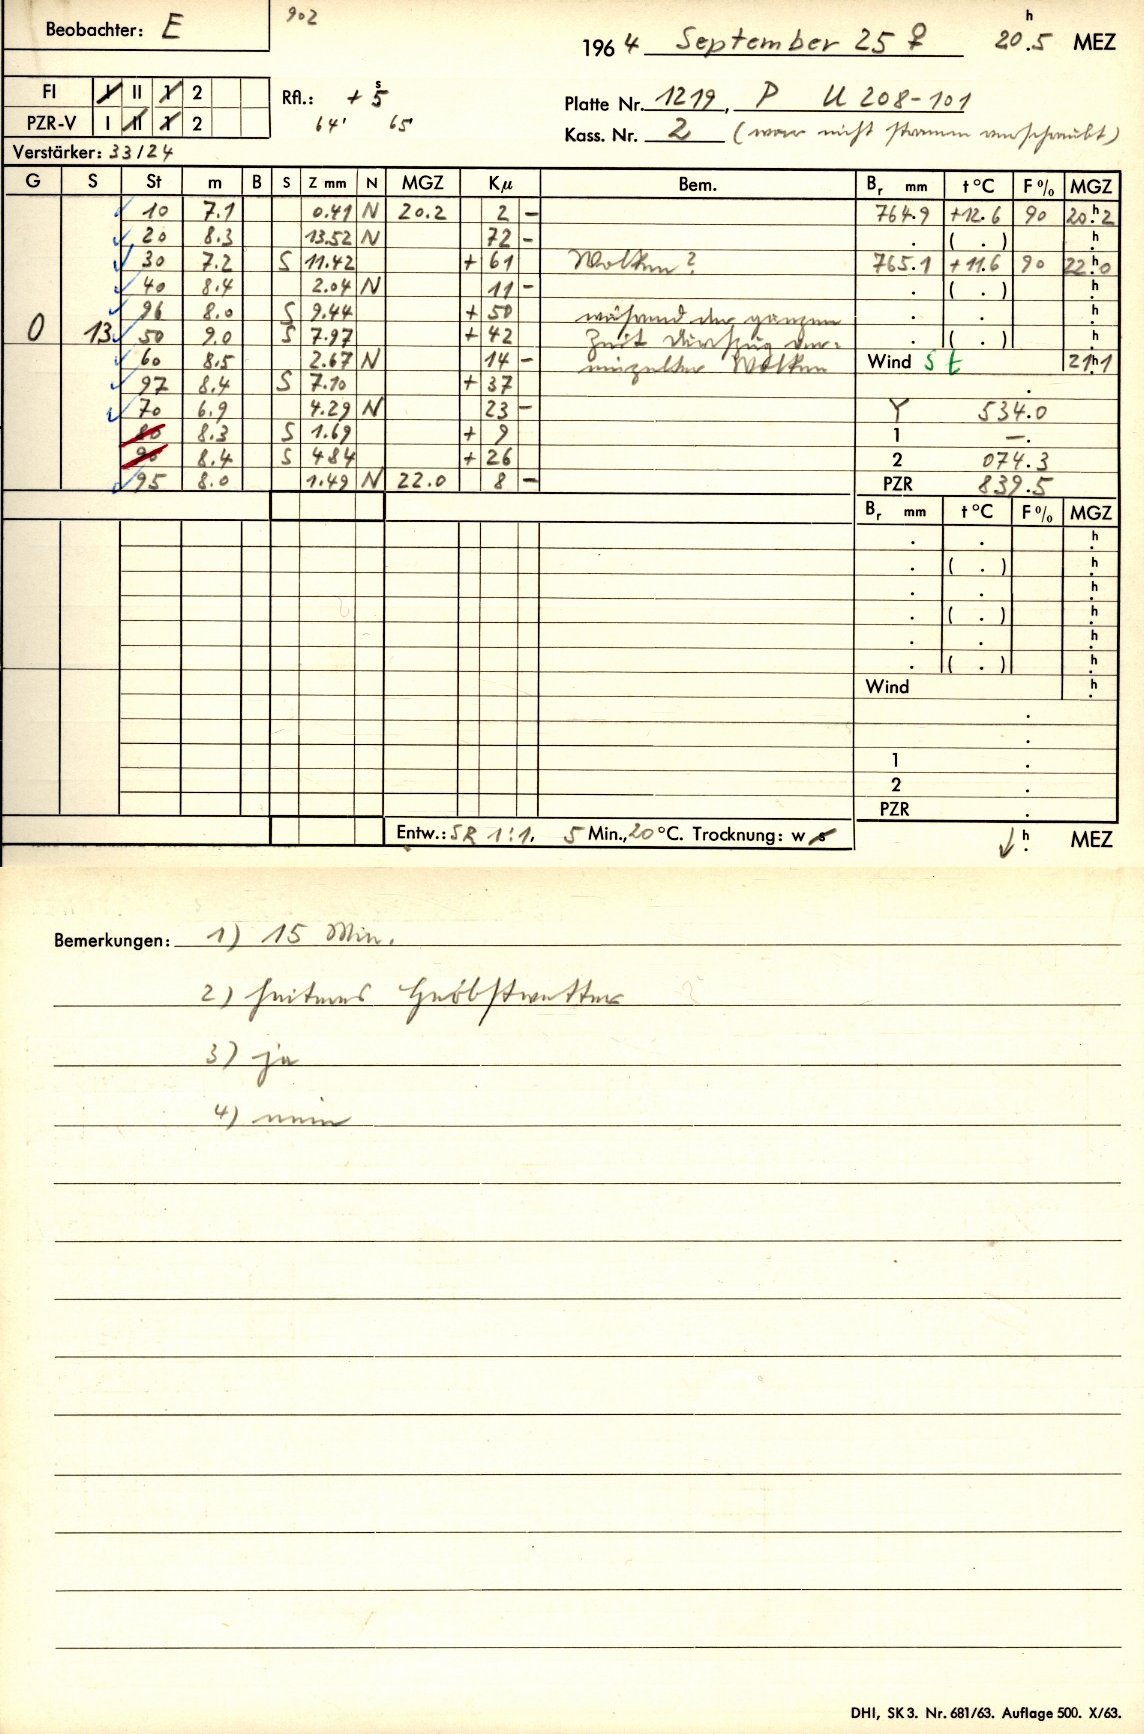 Beobachter: E
902
1964 September 25 ♀ 20h.5 MEZ
FI I II 1 2
Rfl.: + 5s
Platte Nr. 1219, P U 208-101
PZR-V I II 1 2
64' 65
Kass. Nr. 2 (war nicht stramm verschraubt)
Verstärker: 33/24
G S St m B S Z mm N MGZ Kμ Bem. Br mm t °C F % MGZ
10 7.1 0.41 N 20.2 2 - 764.9 +12.6 90 20h.2
20 8.3 13.52 N 72 - . ( . ) h.
30 7.2 S 11.42 + 61 Wolken? 765.1 +11.6 90 22h.0
40 8.4 2.04 N 11 - . ( . ) h.
96 8.0 S 9.44 + 50 während der ganzen . . h.
0 13 50 9.0 S 7.97 + 42 Zeit Durchzug ver- . ( . ) h.
60 8.5 2.67 N 14 - einzelter Wolken Wind S t 21h.1
97 8.4 S 7.10 + 37 .
70 6.9 4.29 N 23 - Y 534.0
80 8.3 S 1.69 + 9 1 —.
90 8.4 S 4.84 + 26 2 074.3
95 8.0 1.49 N 22.0 8 - PZR 839.5
Br mm t °C F % MGZ
. . h.
. ( . ) h.
. . h.
. ( . ) h.
. . h.
. ( . ) h.
Wind h.
.
.
1 .
2 .
PZR .
Entw.: SR 1:1. 5 Min., 20 °C. Trocknung: w s
↓ h. MEZ
Bemerkungen: 1) 15 Min.
2) heiteres Herbstwetter
3) ja
4) nein
DHI, SK 3. Nr. 681/63. Auflage 500. X/63.